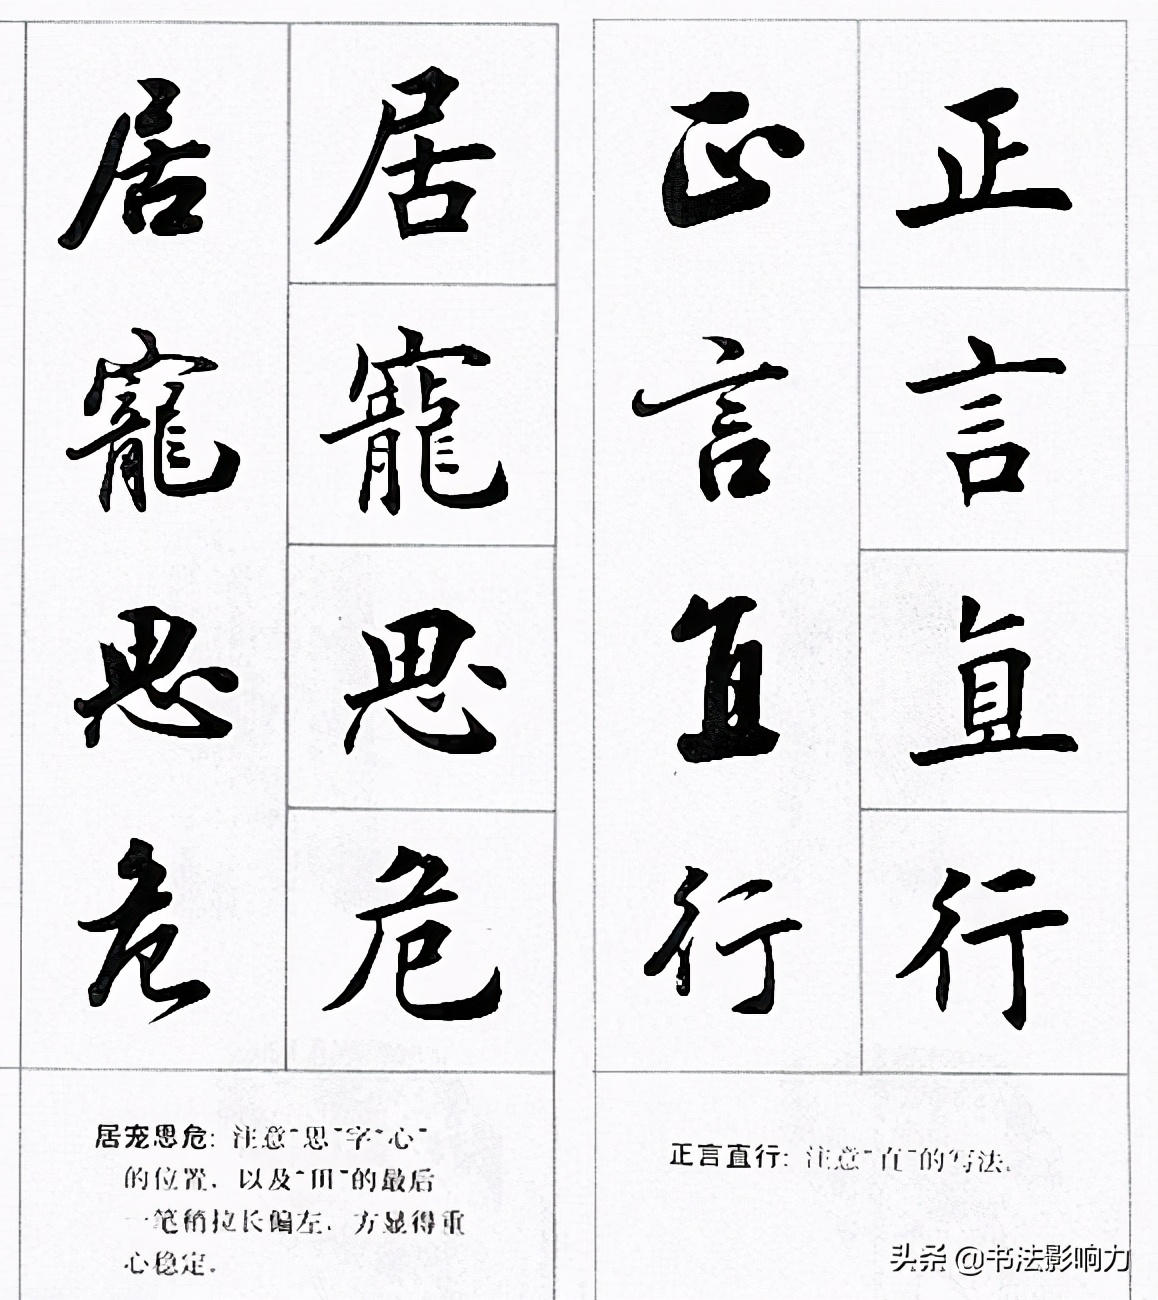 正言直行
正言直行
居寵思危
居寵思危
正言直行：注意“直”的写法。
居宠思危：注意“思”字“心”
的位置，以及“田”的最后
一笔稍拉长偏左，方显得重
心稳定。
头条 @书法影响力